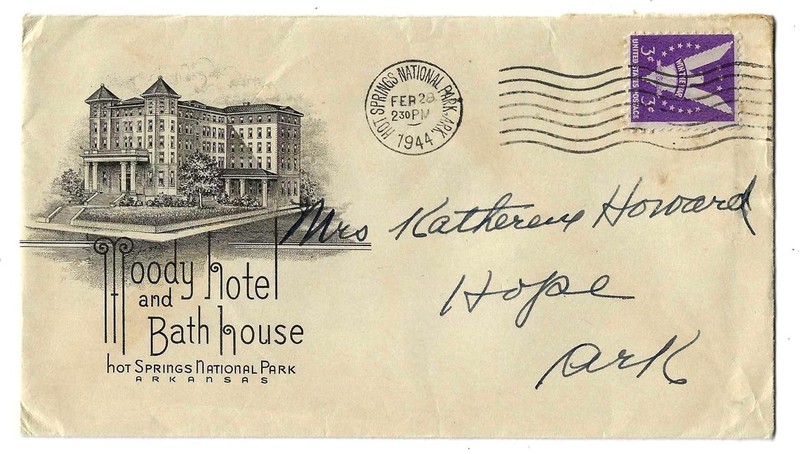 Moody Hotel
and
Bath House
Hot Springs National Park
ARKANSAS
HOT SPRINGS NATIONAL PARK, ARK.
FEB 28
230 PM
1944
UNITED STATES POSTAGE
3¢ 3¢
WIN THE WAR
Mrs Katherene Howard
Hope
Ark